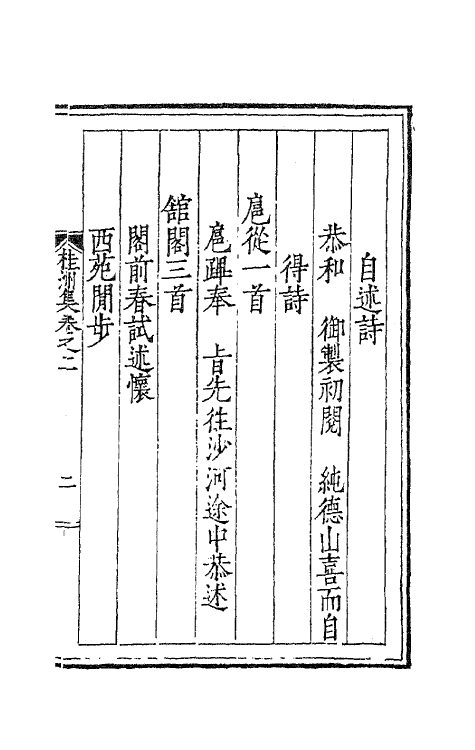 自述詩
恭和　御製初閱　純德山喜而自
得詩
扈從一首
扈蹕奉　旨先徃沙河途中恭述
舘閣三首
閣前春試述懷
西苑閒步
桂洲集卷之二
二